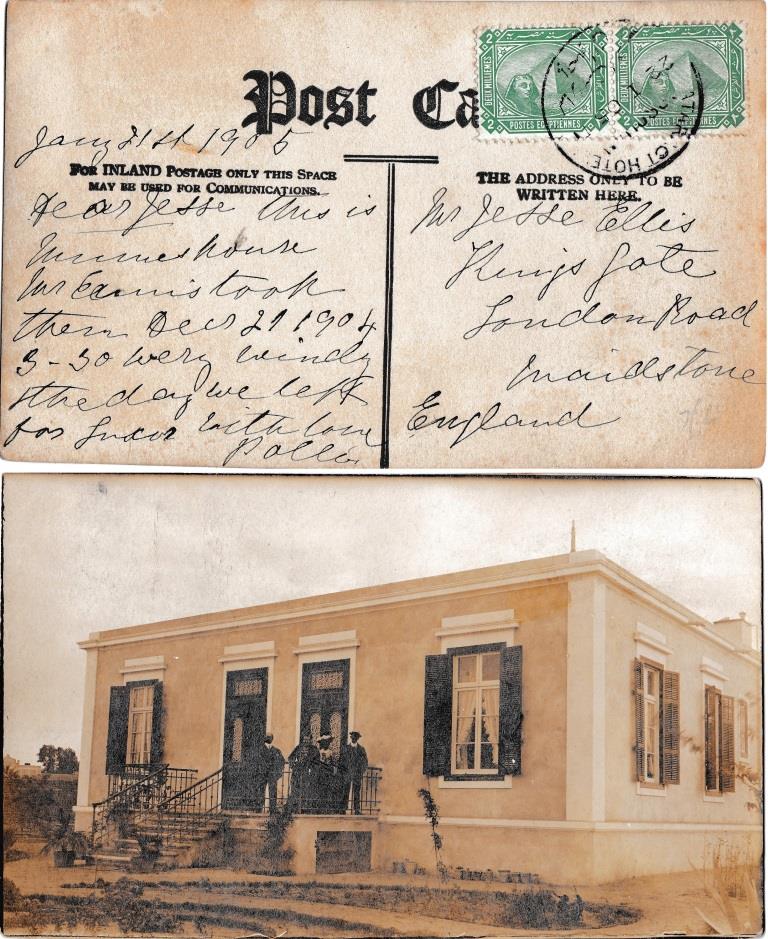 Post Ca
2 دولة مصر ٢
DEUX MILLIEMES
POSTES EGYPTIENNES
2 دولة مصر ٢
DEUX MILLIEMES
POSTES EGYPTIENNES
HOTE
Jany 21st 1905
FOR INLAND POSTAGE ONLY THIS SPACE
MAY BE USED FOR COMMUNICATIONS.
THE ADDRESS ONLY TO BE
WRITTEN HERE.
Dear Jesse this is
house
Mr took
them Decr 21 1904
3-30 very windy
the day we left
for Luxor with love
Mr Jesse Ellis
Kings Gate
London Road
Maidstone
England